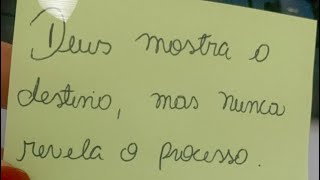 Deus mostra o
destino, mas nunca
revela o processo.